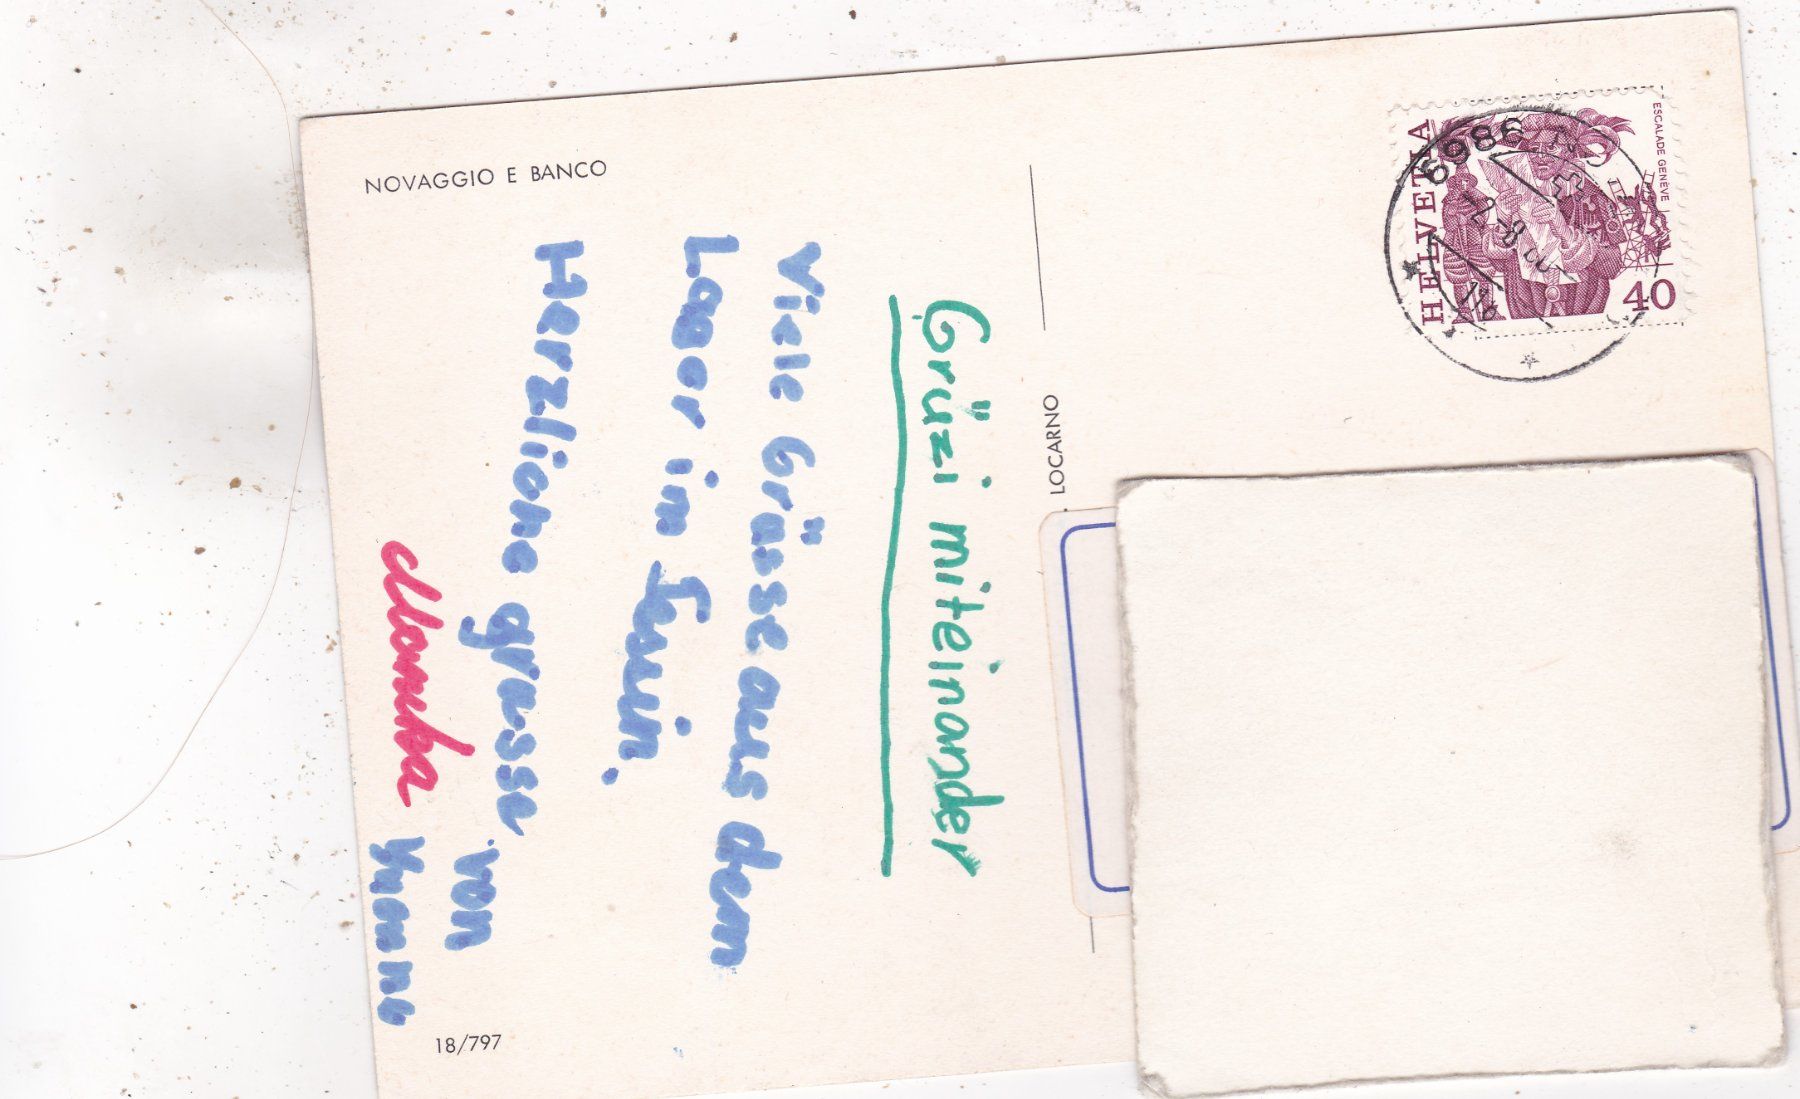 NOVAGGIO E BANCO
Grüzi miteinander
Viele Grüsse aus dem
Lager im Tessin.
Herzliche grüsse
von
18/797
LOCARNO
HELVETIA
ESCALADE GENÈVE
40
6986